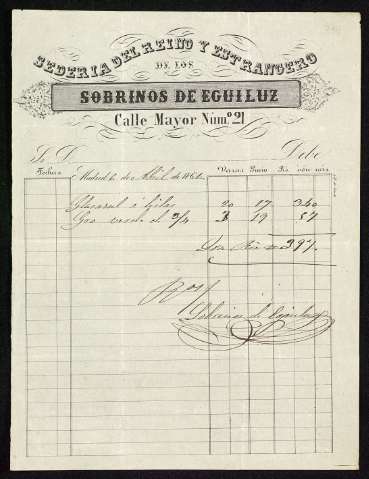 SEDERIA DEL REINO Y ESTRANGERO
DE LOS
SOBRINOS DE EGUILUZ
Calle Mayor Núm.º 21
S. D. Debe
Fechas Madrid 6 de Abril de 186 Varas Precio Rs. vón mrs.
á hilos 20 17 340
Gro verde de 3/4 3 19 57
Son Rs vn 397
Sobrinos de Eguiluz